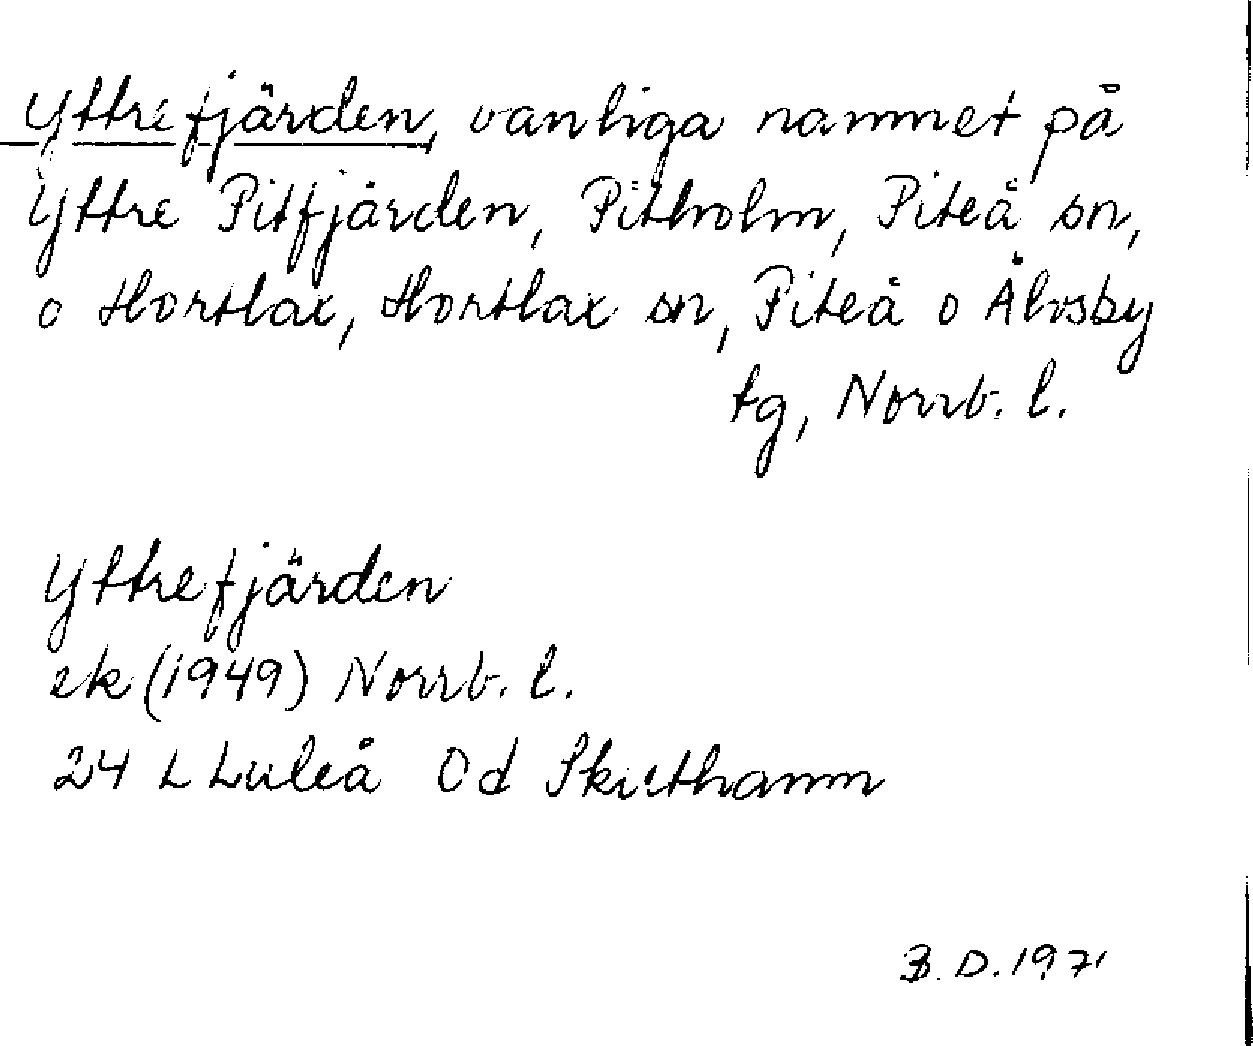 Yttrefjärden, vanliga namnet på
Yttre Pitfjärden, Pitholm, Piteå sn,
o Hortlax, Hortlax sn, Piteå o Älvsby
tg, Norrb. l.
Yttrefjärden
ek (1949) Norrb. l.
24 L Luleå 0d Skuthamn
B.D.1971